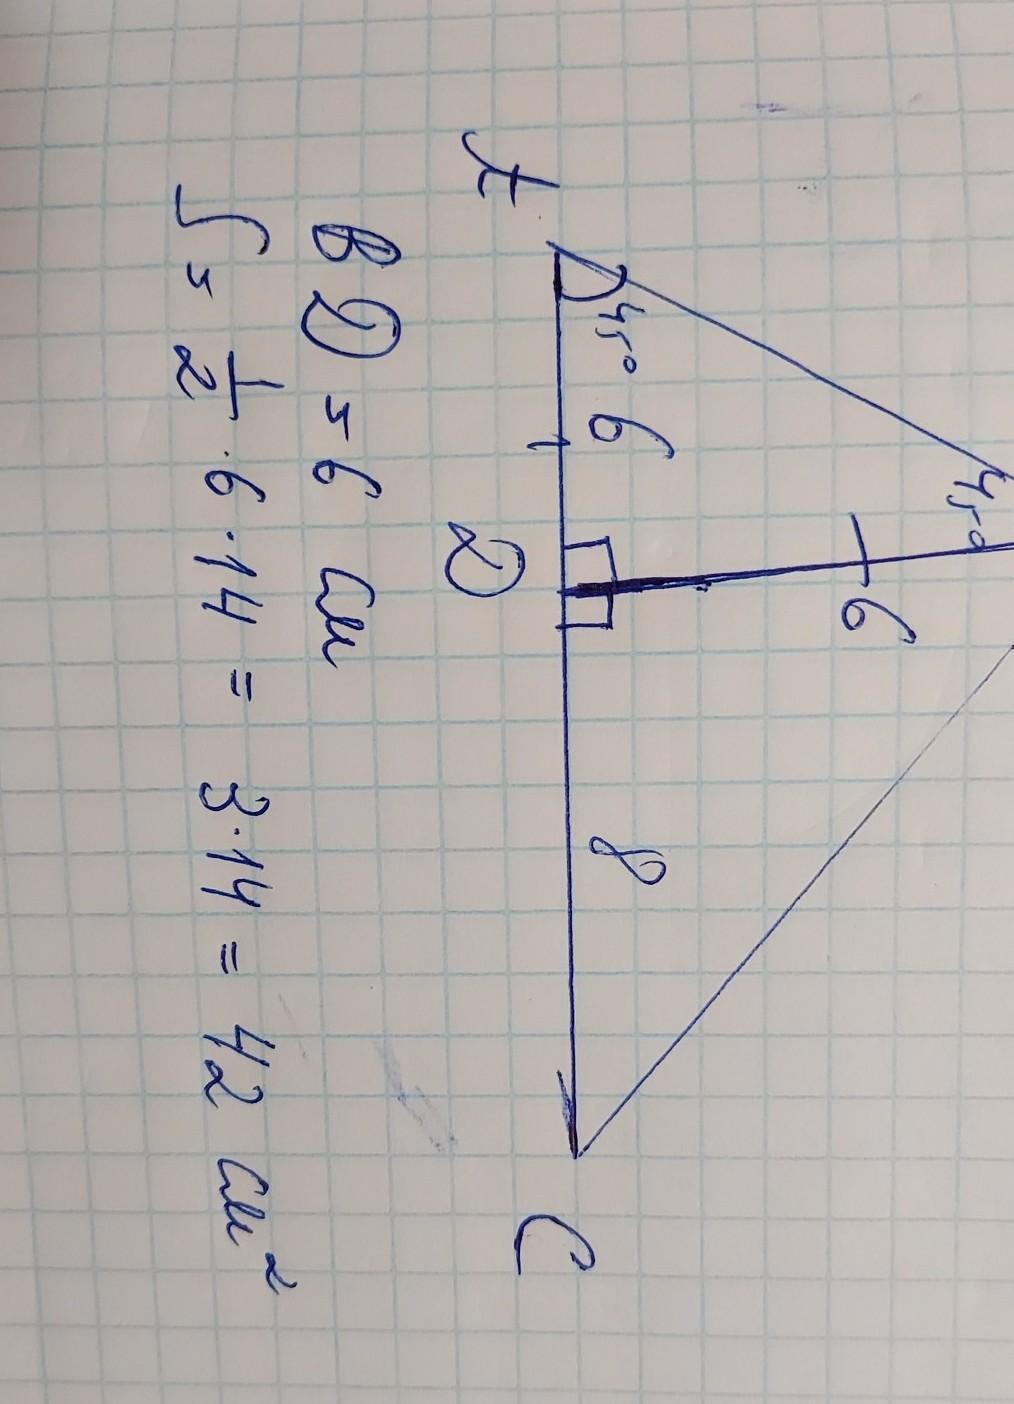 45°
45°
6
6
8
A
D
C
BD = 6 см
S = 1/2 · 6 · 14 = 3 · 14 = 42 см²